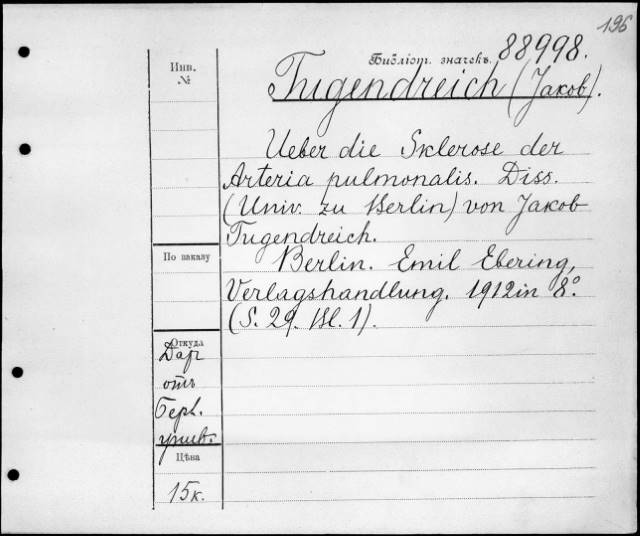 196
Библіот. значекъ. 88998.
Инв.
№
Tugendreich (Jakob).
Ueber die Sklerose der
Arteria pulmonalis. Diss.
(Univ. zu Berlin) von Jakob
Tugendreich.
По заказу
Berlin. Emil Ebering,
Verlagshandlung. 1912 in 8°.
(S. 29. Bl. 1).
Откуда
Даръ
отъ
Берл.
унив.
Цѣна
15 к.